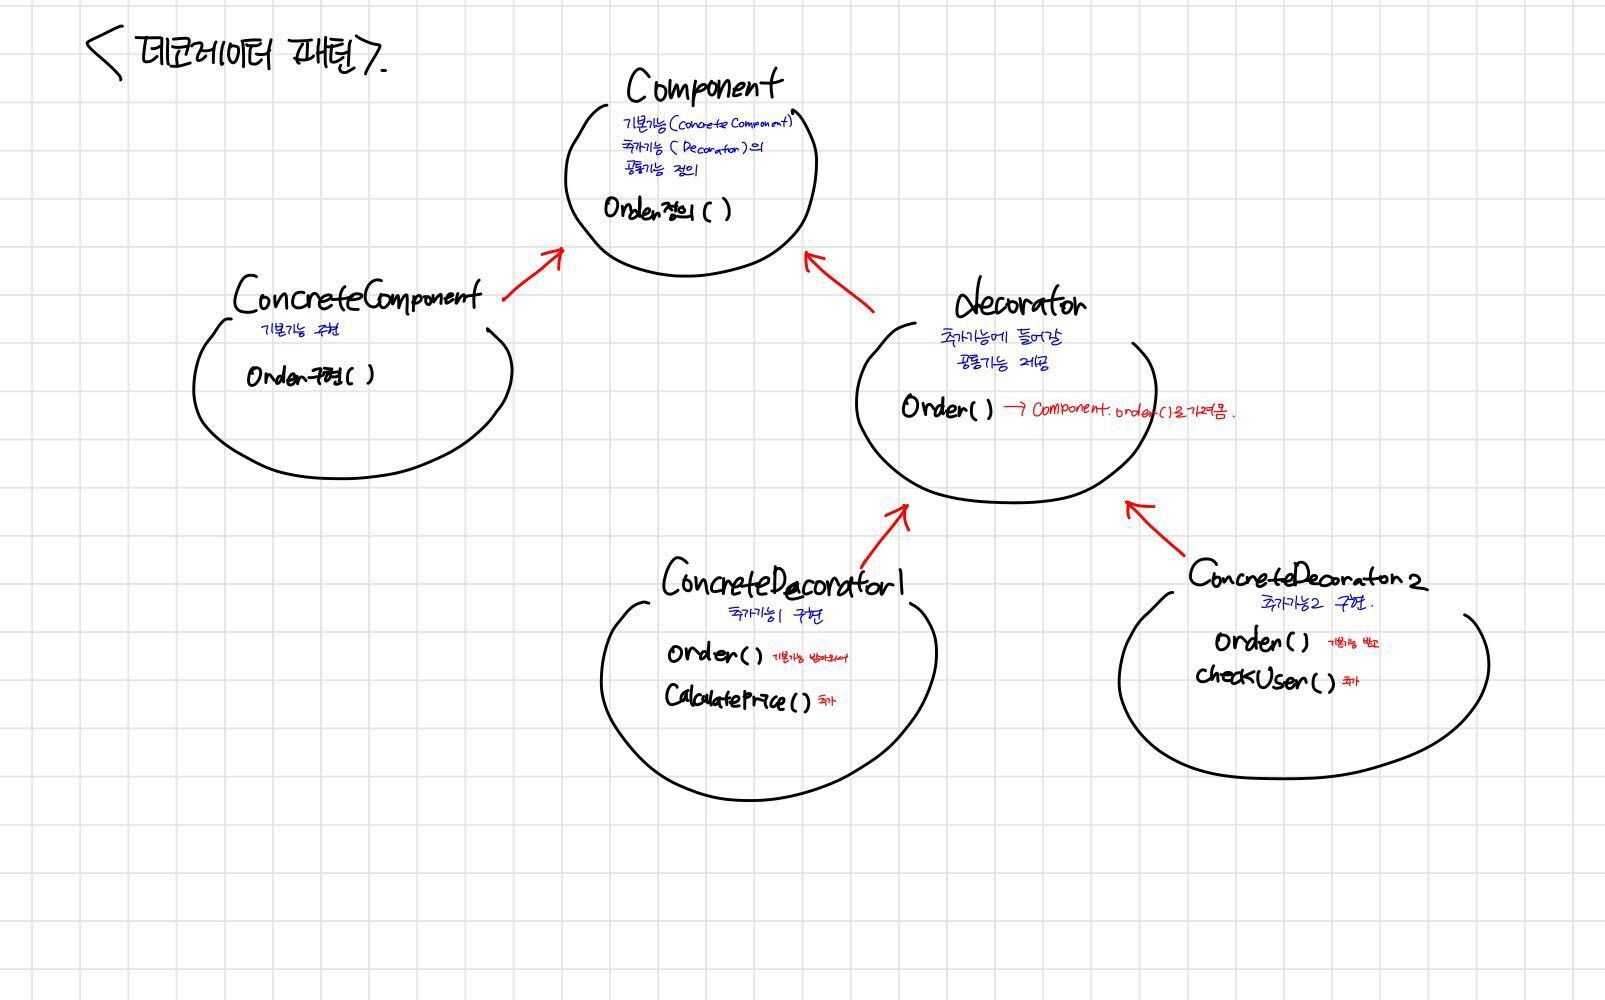 <데코레이터 패턴>.
Component
기본기능(Concrete Component)
추가기능 (Decorator)의
공통기능 정의
Order정의()
ConcreteComponent
기본기능 구현
Order구현()
decorator
추가기능에 들어갈
공통기능 제공
Order() → Component.order()를가져옴.
ConcreteDecorator1
추가기능1 구현
order() 기본기능 받아와서
CalculatePrice() 추가
ConcreteDecorator2
추가기능2 구현.
order() 기본기능 받고
checkUser() 추가